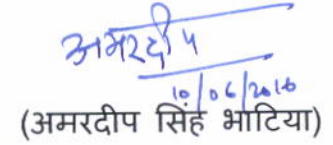 अमरदीप
10/06/2016
(अमरदीप सिंह भाटिया)